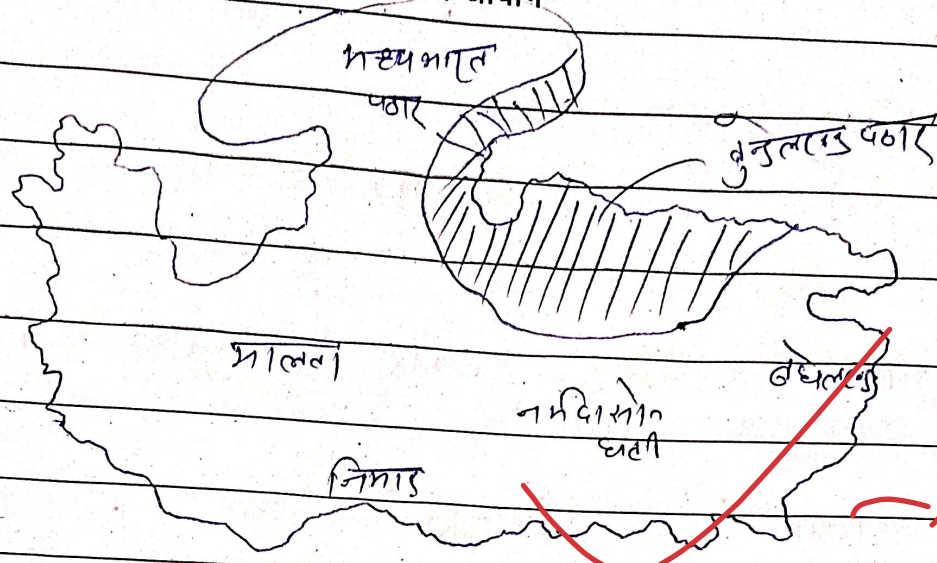 मध्य भारत
पठार
बुन्देलखण्ड पठार
मालवा
बघेलखण्ड
नर्मदा सोन
घाटी
निमाड़